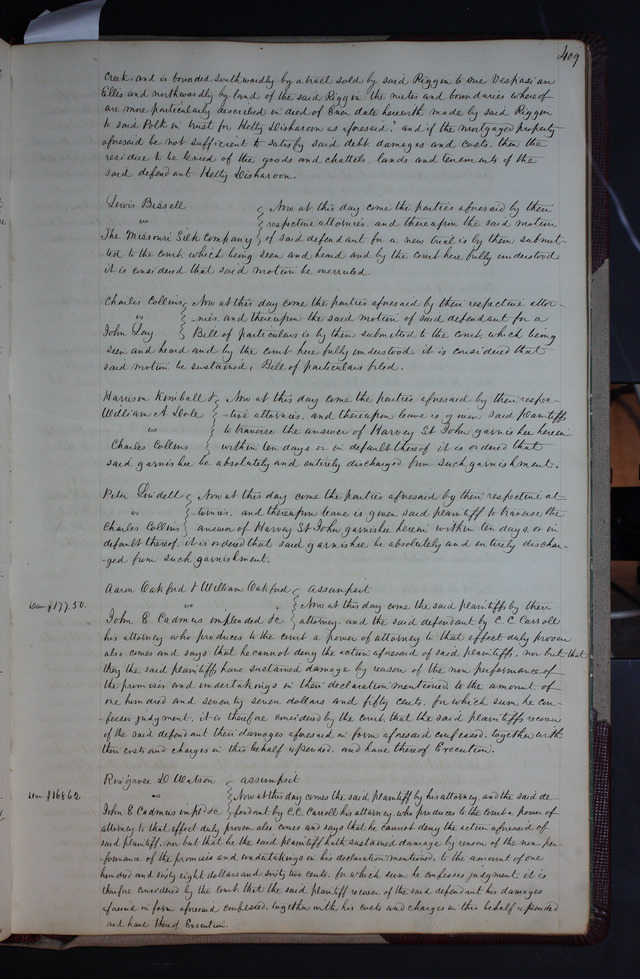 409
Creek, and is bounded southwardly by a tract sold by said Riggin to one Vespasian
Ellis and northwardly by land of the said Riggin the metes and boundaries whereof
are more particularly described in deed of Even date herewith made by said Riggin
to said Polk in trust for Hetty Disharoon as aforesaid." and if the mortgaged property
aforesaid be not sufficient to satisfy said debt damages and costs, then the
residue to be levied of the goods and chattels, lands and tenements of the
said defendant Hetty Disharoon.
Lewis Bissell
vs
The Missouri Silk Company
Now at this day come the parties aforesaid by their
respective attornies, and thereupon the said motion
of said defendant for a new trial is by them submit-
ted to the court, which being seen and heard and by the court here fully understood
it is considered that said motion be overruled.
Charles Collins
vs
John Lay
Now at this day come the parties aforesaid by their respective attor-
-nies, and thereupon the said motion of said defendant for a
Bill of particulars is by them submitted to the court, which being
seen and heard and by the court here fully understood, it is considered that
said motion be sustained, Bill of particulars filed.
Harrison Kimball &
William A Dole
vs
Charles Collins
Now at this day come the parties aforesaid by their respec-
-tive attornies, and thereupon leave is given said plaintiffs
to traverse the answer of Harvey St John garnishee herein
within ten days or in default thereof it is ordered that
said garnishee be absolutely and entirely discharged from such garnishment.
Peter Lindell
vs
Charles Collins
Now at this day come the parties aforesaid by their respective at-
-tornies, and thereupon leave is given said plaintiff to traverse the
answer of Harvey St John garnishee herein within ten days, or in
default thereof, it is ordered that said garnishee be absolutely and entirely dischar-
-ged from such garnishment.
Dam. $177.50.
Aaron Oakford & William Oakford
vs
John E Cadmus impleaded &c
assumpsit
Now at this day come the said plaintiffs by their
attorney, and the said defendant by C. C. Carroll
his attorney who produces to the court a power of attorney to that effect duly proven
also comes and says that he cannot deny the action aforesaid of said plaintiffs, nor but that
they the said plaintiffs have sustained damage by reason of the non performance of
the promises and undertakings in their declaration mentioned to the amount of
one hundred and seventy seven dollars and fifty cents, for which sum he con-
fesses judgment, it is therefore considered by the court, that the said plaintiffs recover
of the said defendant their damages aforesaid in form aforesaid confessed, together with
their costs and charges in this behalf expended, and have thereof Execution.
Dam. $168.62
Ringrose D Watson
vs
John E Cadmus impl'd &c
assumpsit
Now at this day comes the said plaintiff by his attorney, and the said de-
fendant by C.C. Carroll his attorney, who produces to the court a power of
attorney to that effect duly proven also comes and says that he cannot deny the action aforesaid of
said plaintiff, nor but that he the said plaintiff hath sustained damage by reason of the non-per
formance of the promises and undertakings in his declaration mentioned, to the amount of one
hundred and sixty eight dollars and sixty two cents, for which sum he confesses judgment, it is
therefore considered by the court that the said plaintiff recover of the said defendant his damages
aforesaid in form aforesaid confessed, together with his costs and charges in this behalf expended
and have thereof Execution.